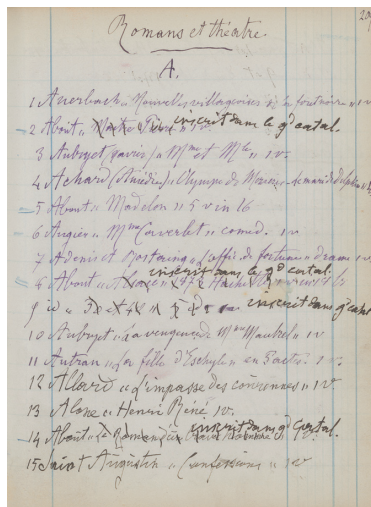 Romans et théâtre.
A.
1 Auerbach « Nouvelles villageoises de la forêt noire » 1 v
2 About « inscrit dans le gd catal.
3 Aubryet (Xavier) « Mme et Mlle » 1 v.
4 Achard (Amédée) « Olympe de
5 About « Madelon » 5 v in 16
6 Augier « Mme Caverlet » comed. 1 v
7 Adenis et Rostaing « de fortune » drame 1 v.
8 About inscrit dans le gd catal.
9 id « inscrit dans gd catal
10 Aubryet « La vengeance de Mme Maubrel » 1 v
11 Autran « La fille d'Eschyle » en 5 actes. 1 v.
12 Allard « L'impasse des couronnes » 1 v
13 Alone « Henri Réné 1 v.
14 About « Le Roman inscrit dans gd Catal.
15 Saint Augustin « Confessions » 1 v